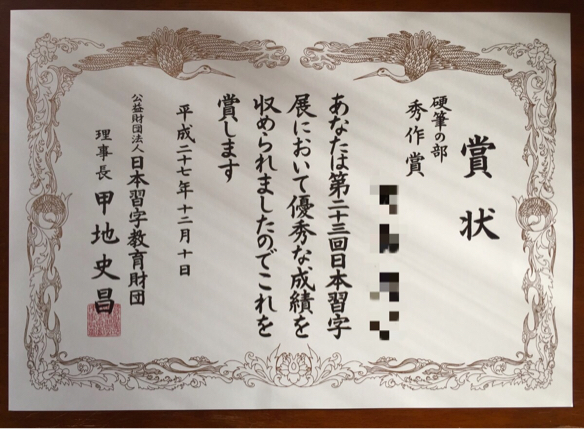 賞状
硬筆の部
秀作賞
あなたは第二十三回日本習字
展において優秀な成績を
収められましたのでこれを
賞します
平成二十七年十二月十日
公益財団法人日本習字教育財団
理事長 甲地史昌